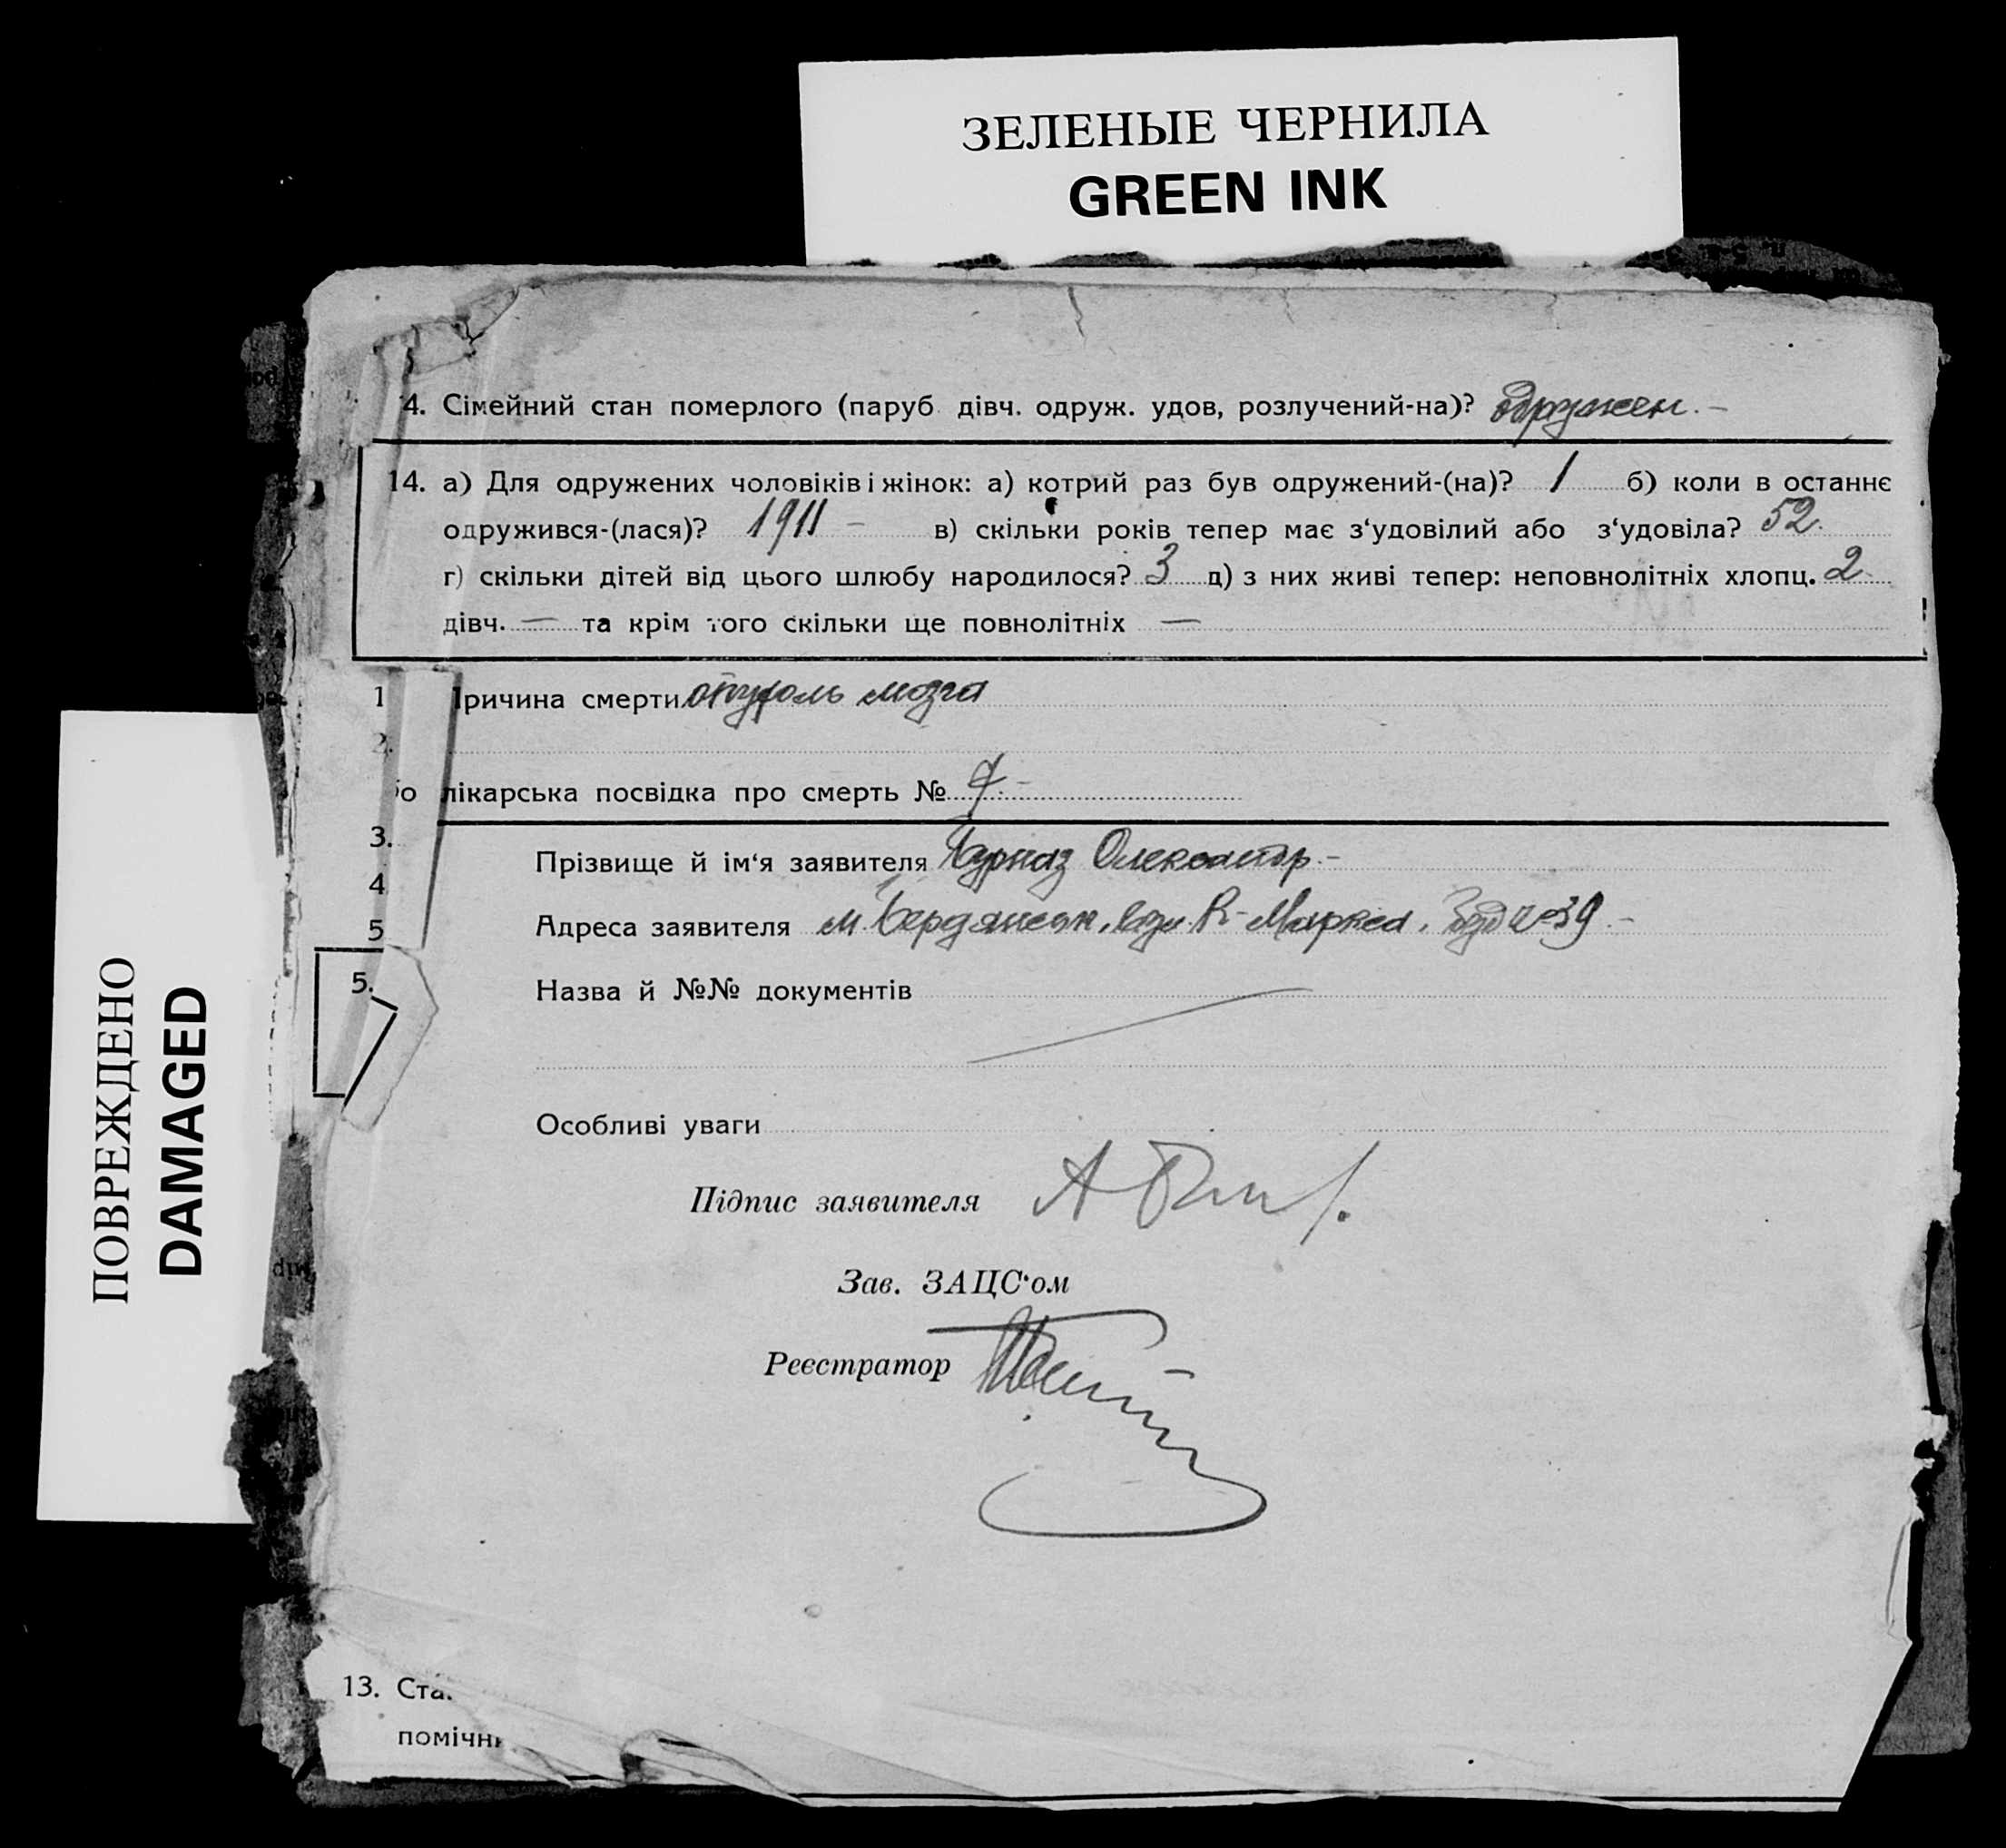 ЗЕЛЕНЫЕ ЧЕРНИЛА
GREEN INK
4. Сімейний стан померлого (паруб. дівч. одруж. удов, розлучений-на)? одружен. –
14. а) Для одружених чоловіків і жінок: а) котрий раз був одружений-(на)? 1 б) коли в останнє
одружився-(лася)? 1911 – в) скільки років тепер має з‘удовілий або з‘удовіла? 52.
г) скільки дітей від цього шлюбу народилося? 3 д) з них живі тепер: неповнолітніх хлопц. 2
дівч. — та крім того скільки ще повнолітніх —
1 Причина смерти опухоль мозга
2.
бо лікарська посвідка про смерть № 7 –
3.
Прізвище й ім‘я заявителя Олександр. –
4
Адреса заявителя м. Бердянськ, вул. К-Маркса, буд № 39 –
5
5. Назва й №№ документів
Особливі уваги
Підпис заявителя
Зав. ЗАЦС‘ом
Реєстратор
13. Ста
помічн
ПОВРЕЖДЕНО
DAMAGED